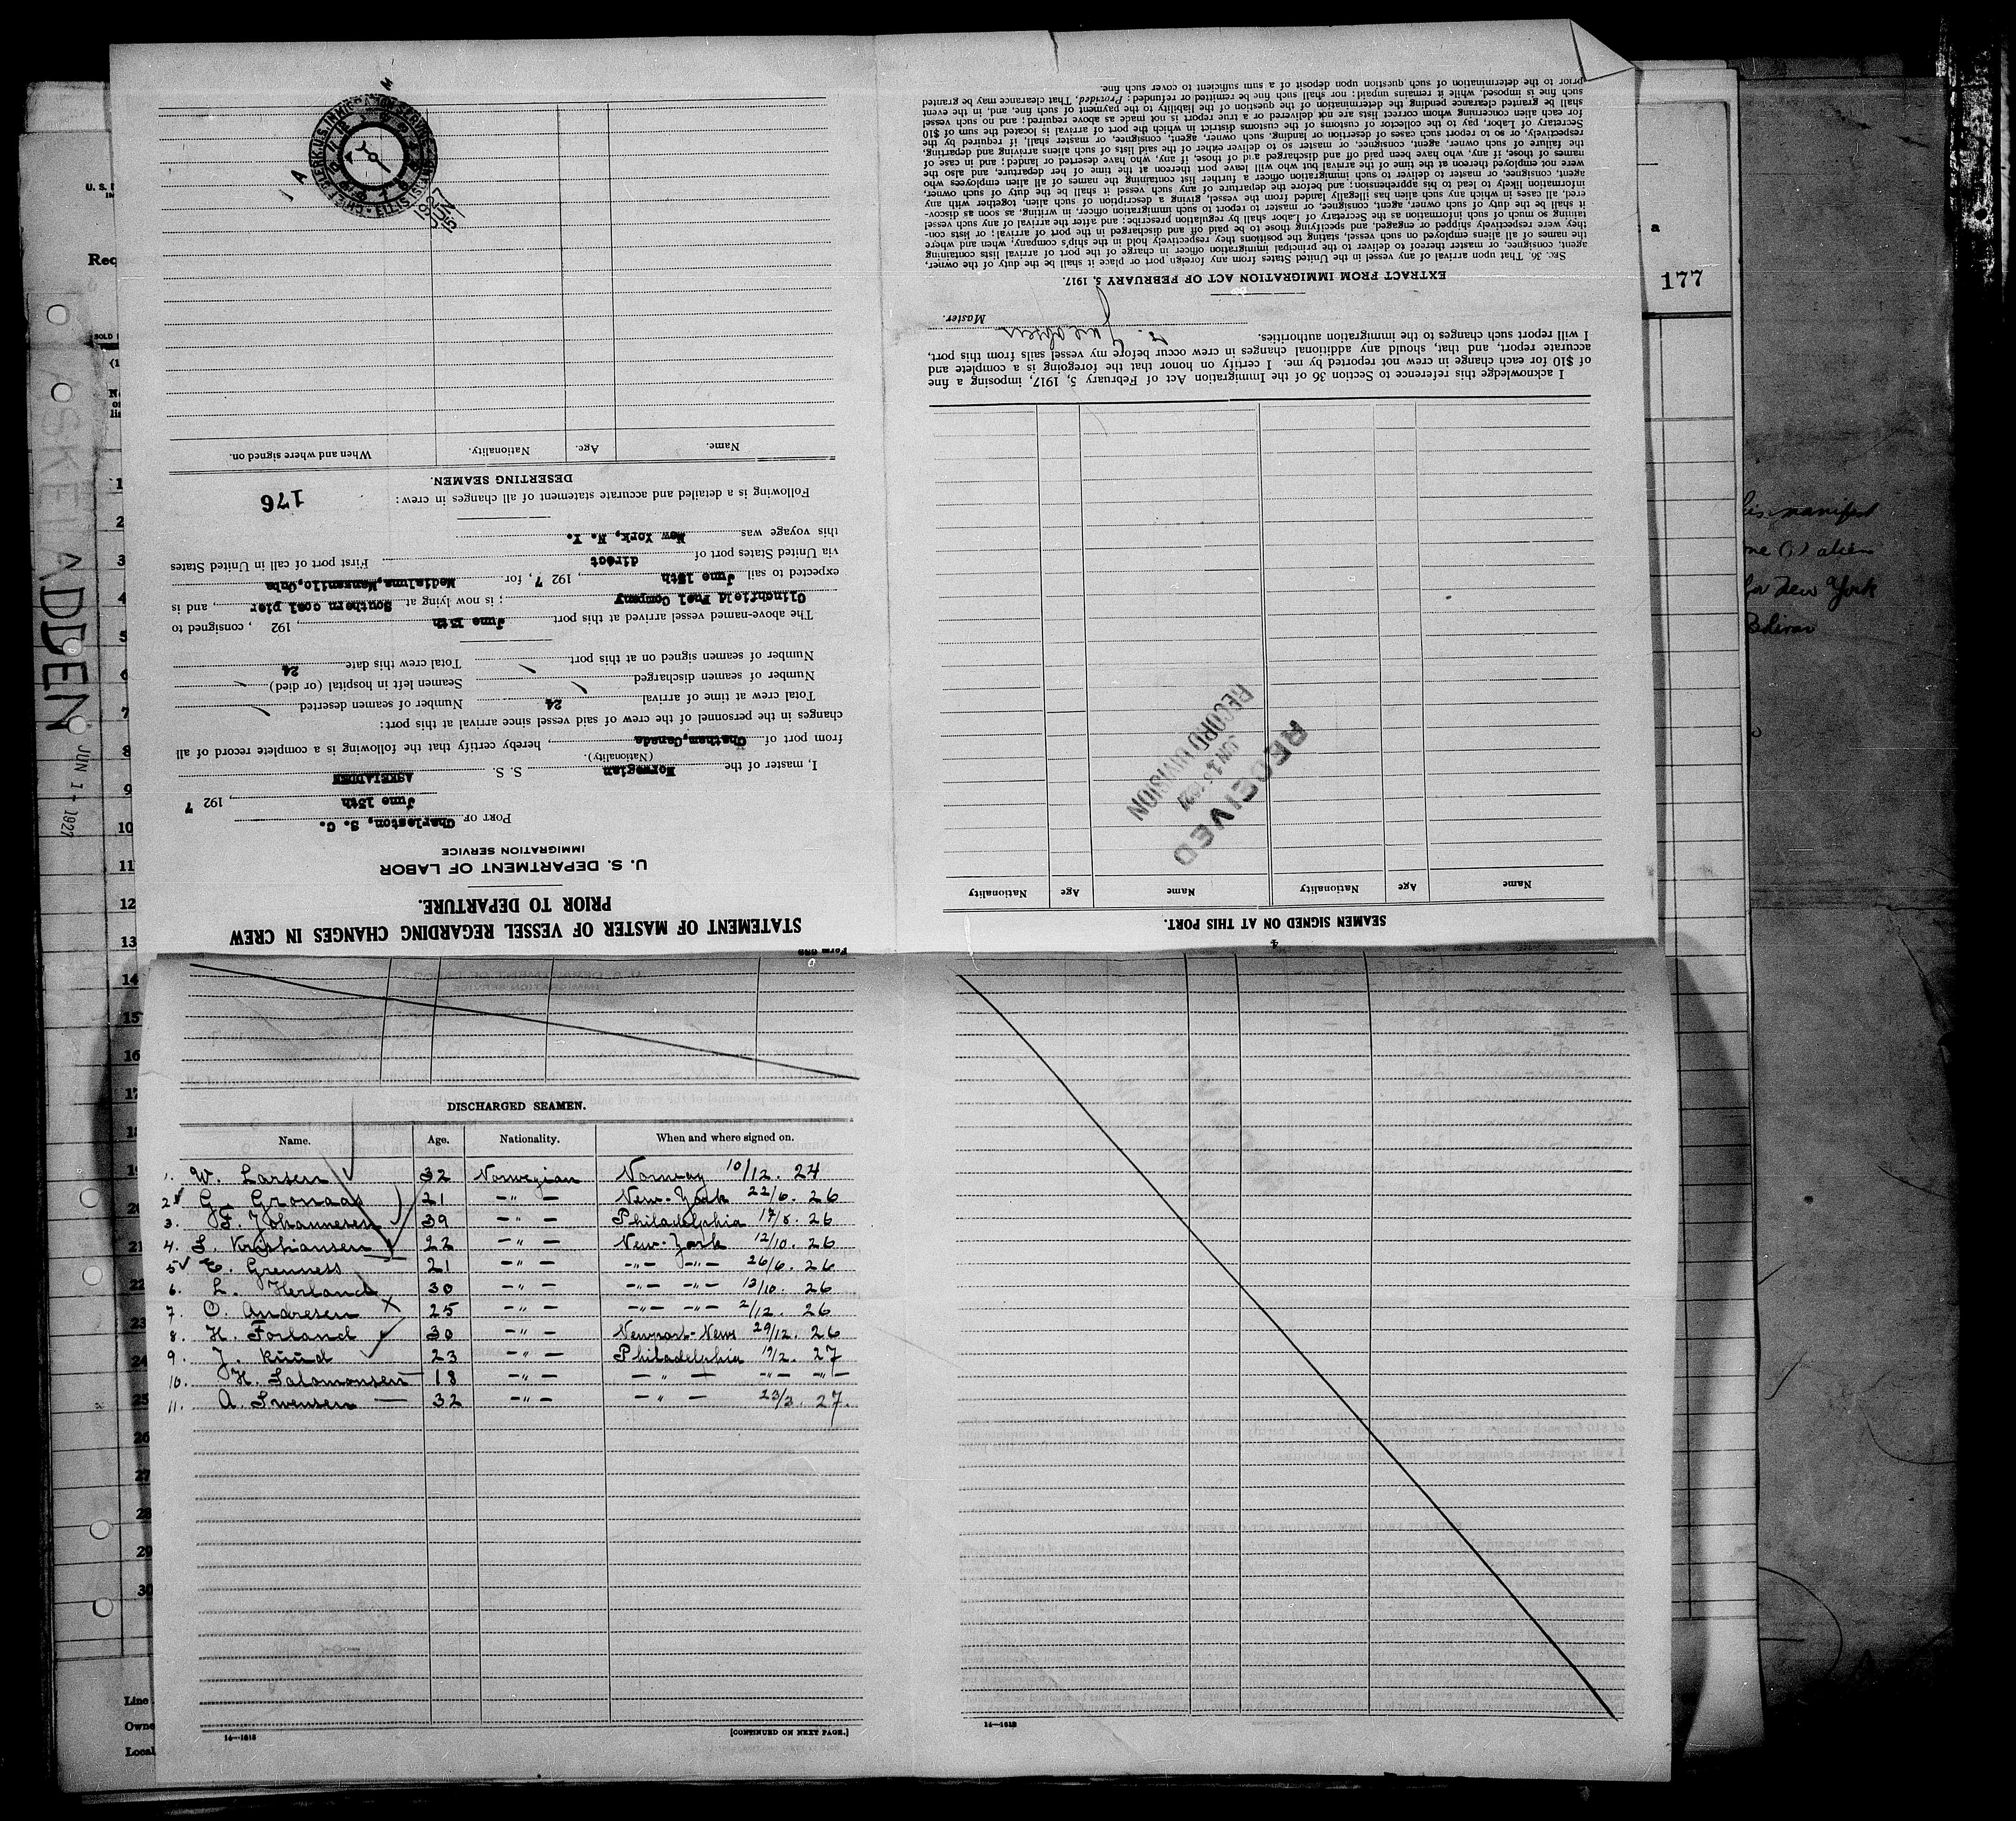 STATEMENT OF MASTER OF VESSEL REGARDING CHANGES IN CREW
PRIOR TO DEPARTURE.
U. S. DEPARTMENT OF LABOR
IMMIGRATION SERVICE
PORT OF Charleston, S. C.
June 15th, 192 7
I, master of the Norwegian S. S. ASKELADDEN
(Nationality).
from port of Chatham, Canada, hereby certify that the following is a complete record of all
changes in the personnel of the crew of said vessel since arrival at this port:
Total crew at time of arrival 24 Number of seamen deserted
Number of seamen discharged Seamen left in hospital (or died)
Number of seamen signed on at this port Total crew this date 24
The above-named vessel arrived at this port June 13th, 192 , consigned to
Clinchfield Fuel Company; is now lying at Southern coal pier, and is
expected to sail June 15th, 192 7, for Medialuna, Manzanillo, Cuba
via United States port of direct First port of call in United States
this voyage was New York, N. Y.
Following is a detailed and accurate statement of all changes in crew:
176
DESERTING SEAMEN.
Name. Age. Nationality. When and where signed on.
CHIEF CLERK U.S. IMMIGRATION SERVICE ELLIS ISL'D
1 A M
1927
JUN
15
4
SEAMEN SIGNED ON AT THIS PORT.
Name Age Nationality Name Age Nationality
RECEIVED
JUN 15 1927
RECORD DIVISION
I acknowledge this reference to Section 36 of the Immigration Act of February 5, 1917, imposing a fine
of $10 for each change in crew not reported by me. I certify on honor that the foregoing is a complete and
accurate report, and that, should any additional changes in crew occur before my vessel sails from this port,
I will report such changes to the immigration authorities.
Master.
EXTRACT FROM IMMIGRATION ACT OF FEBRUARY 5, 1917.
SEC. 36. That upon arrival of any vessel in the United States from any foreign port or place it shall be the duty of the owner,
agent, consignee, or master thereof to deliver to the principal immigration officer in charge of the port of arrival lists containing
the names of all aliens employed on such vessel, stating the positions they respectively hold in the ship's company, when and where
they were respectively shipped or engaged, and specifying those to be paid off and discharged in the port of arrival; or lists con-
taining so much of such information as the Secretary of Labor shall by regulation prescribe; and after the arrival of any such vessel
it shall be the duty of such owner, agent, consignee, or master to report to such immigration officer, in writing, as soon as discov-
ered, all cases in which any such alien has illegally landed from the vessel, giving a description of such alien, together with any
information likely to lead to his apprehension; and before the departure of any such vessel it shall be the duty of such owner,
agent, consignee, or master to deliver to such immigration officer a further list containing the names of all alien employees who
were not employed thereon at the time of the arrival but who will leave port thereon at the time of her departure, and also the
names of those, if any, who have been paid off and discharged and of those, if any, who have deserted or landed; and in case of
the failure of such owner, agent, consignee, or master so to deliver either of the said lists of such aliens arriving and departing,
respectively, or so to report such cases of desertion or landing, such owner, agent, consignee, or master shall, if required by the
Secretary of Labor, pay to the collector of customs of the customs district in which the port of arrival is located the sum of $10
for each alien concerning whom correct lists are not delivered or a true report is not made as above required; and no such vessel
shall be granted clearance pending the determination of the question of the liability to the payment of such fine, and, in the event
such fine is imposed, while it remains unpaid; nor shall such fine be remitted or refunded: Provided, That clearance may be granted
prior to the determination of such question upon deposit of a sum sufficient to cover such fine.
DISCHARGED SEAMEN.
Name. Age. Nationality. When and where signed on.
1. W. Larsen 32 Norwegian Norway 10/12. 24
2 G. Gronaas 21 -"- New-York 22/6. 26
3. F. Johannesen 39 -"- Philadelphia 17/8. 26
4. S. Kristiansen 22 -"- New-York 12/10. 26
5 E. Grenness 21 -"- -"- -"- 26/6. 26
6. L. Herland 30 -"- -"- -"- 13/10. 26
7. O. Andresen 25 -"- -"- -"- 2/12. 26
8. H. Forland 30 -"- Newport-News 29/12. 26
9. J. Ruud 23 -"- Philadelphia 19/2. 27
10. H. Salomonsen 18 -"- -"- -"- -"-
11. A. Swensen 32 -"- -"- 23/3. 27.
14—1618
[CONTINUED ON NEXT PAGE.]
14—1618
ASKELADDEN
JUN 1 - 1927
177
a
U. S.
Req
1
2
3
4
5
6
7
8
9
10
11
12
13
14
15
16
17
18
19
20
21
22
23
24
25
26
27
28
29
30
Line
Owne
Local
manifest
alien
for New York
Bolivar